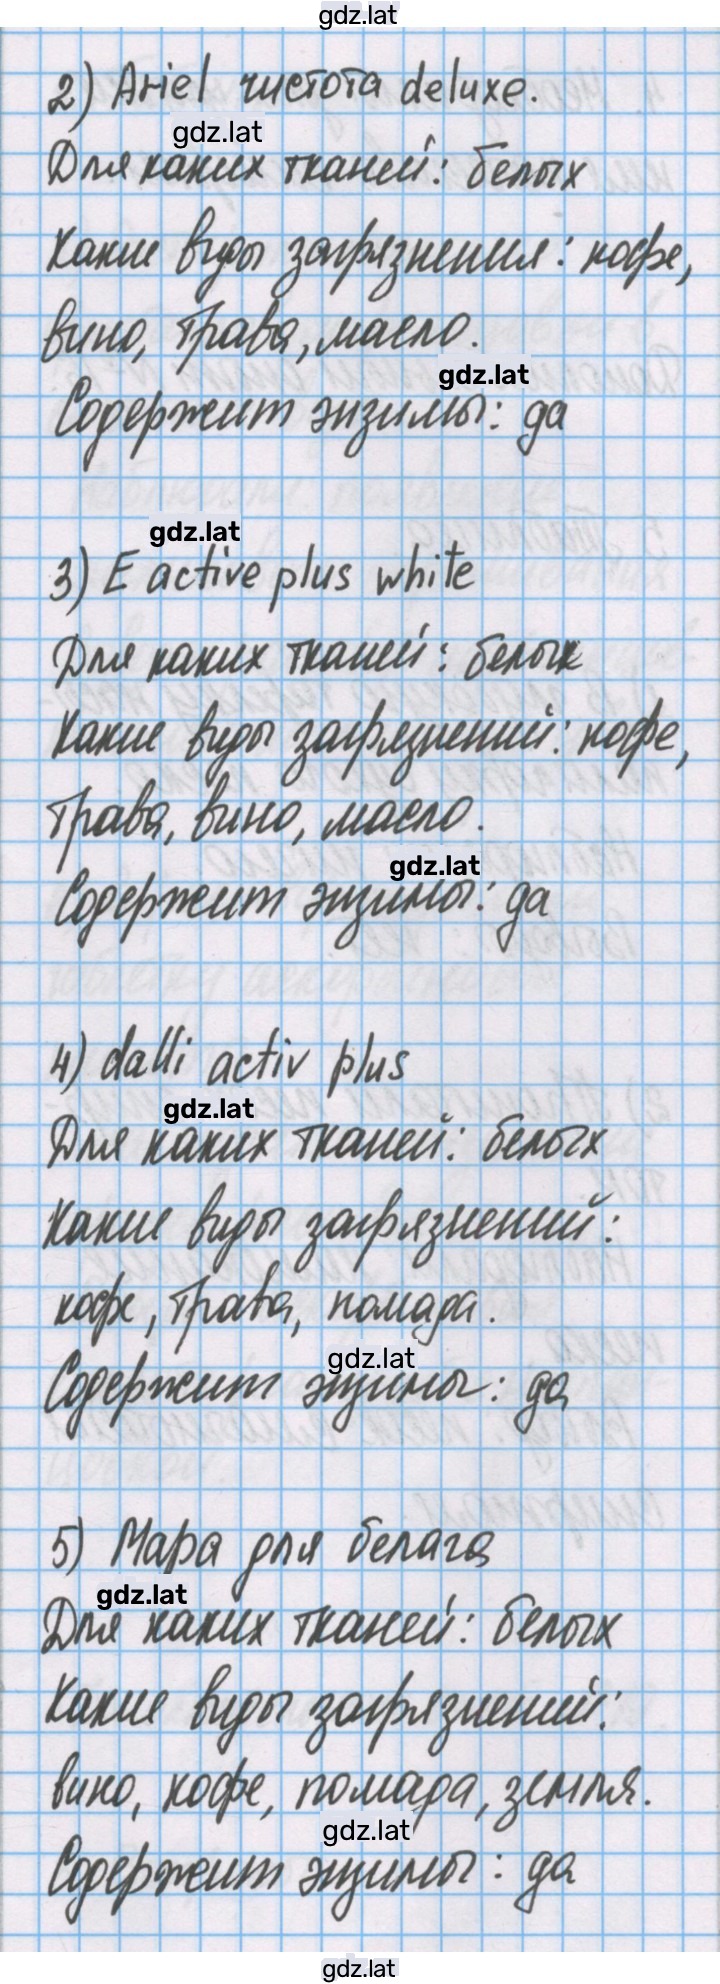 gdz.lat
2) Ariel чистота deluxe.
gdz.lat
Для каких тканей: белых
Какие виды загрязнения: кофе,
вино, трава, масло.
gdz.lat
Содержит энзимы: да
gdz.lat
3) E active plus white
Для каких тканей: белых
Какие виды загрязнений: кофе,
трава, вино, масло.
gdz.lat
Содержит энзимы: да
4) dalli activ plus
gdz.lat
Для каких тканей: белых
Какие виды загрязнений:
кофе, трава, помада.
gdz.lat
Содержит энзимы: да
5) Мара для белага
gdz.lat
Для каких тканей: белых
Какие виды загрязнений:
вино, кофе, помада, земля.
gdz.lat
Содержит энзимы: да
gdz.lat